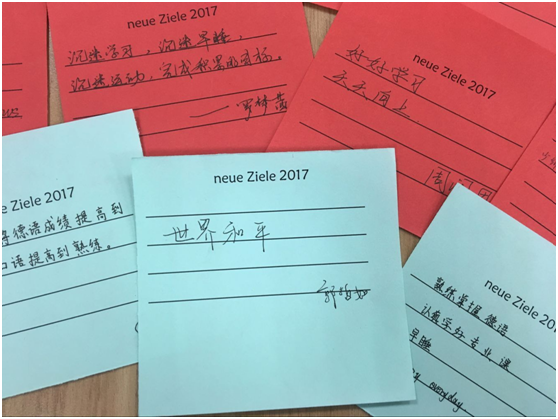 neue Ziele 2017
沉迷学习，沉迷早睡，
沉迷运动，完成积累的目标。
neue Ziele 2017
好好学习
天天向上
e Ziele 2017
德语成绩提高到
口语提高到熟练。
neue Ziele 2017
世界和平
neue Ziele 201
熟练掌握德语
认真学好专业课
早睡
everyday